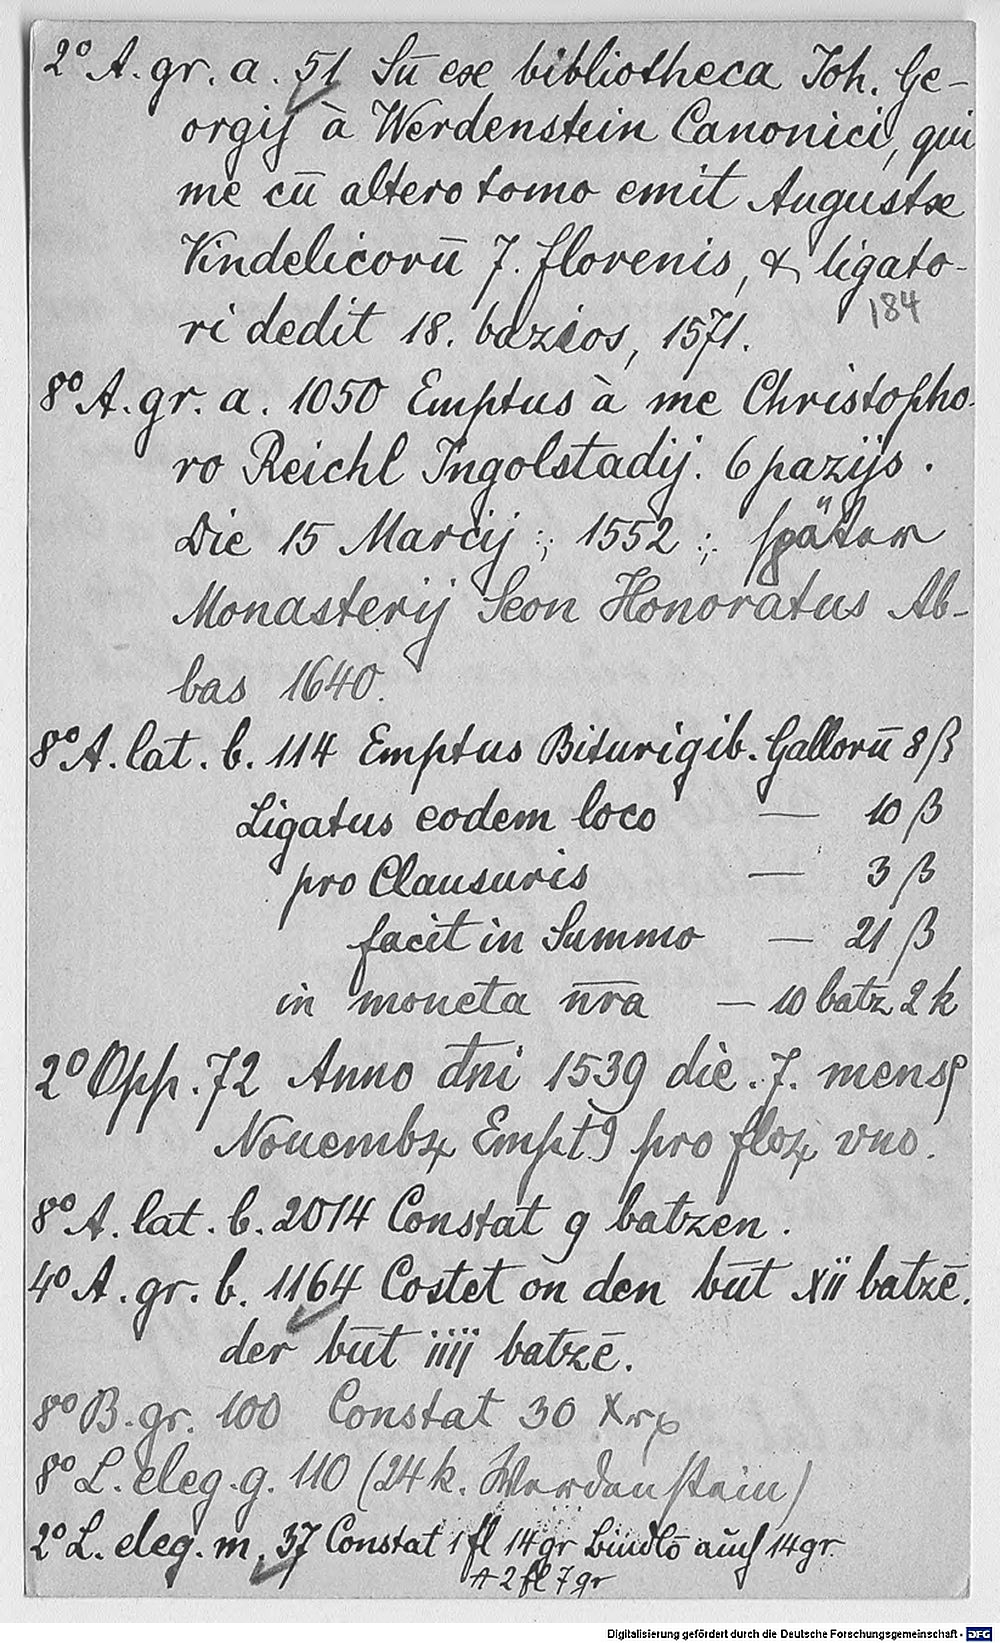 2° A. gr. a. 51 Sū exe bibliotheca Joh. Ge-
orgij à Werdenstein Canonici, qui
me cū altero tomo emit Augustæ
Vindelicorū 7. florenis, & ligato-
ri dedit 18. bazios, 1571.
184
8° A. gr. a. 1050 Emptus à me Christopho-
ro Reichl Ingolstadij. 6 pazijs.
Die 15 Marcij :, 1552 :, später
Monasterij Seon Honoratus Ab-
bas 1640.
8° A. lat. b. 114 Emptus Biturigib. Gallorū 8 β
Ligatus eodem loco — 10 β
pro Clausuris — 3 β
facit in Summo — 21 β
in moneta n̄r̄a — 10 batz 2 k
2° Opp. 72 Anno dn̄i 1539 die. 7. mensꝭ
Nouembꝝ Emptꝰ pro floꝝ vno.
8° A. lat. b. 2014 Constat 9 batzen.
4° A. gr. b. 1164 Costet on den būt xii batzē.
der būt iiij batzē.
8° B. gr. 100 Constat 30 Xrꝭ
8° L. eleg. g. 110 (24 k. Werdenstein)
2° L. eleg. m. 37 Constat 1 fl 14 gr Bindlō auch 14 gr.
2 fl 7 gr
Digitalisierung gefördert durch die Deutsche Forschungsgemeinschaft - DFG